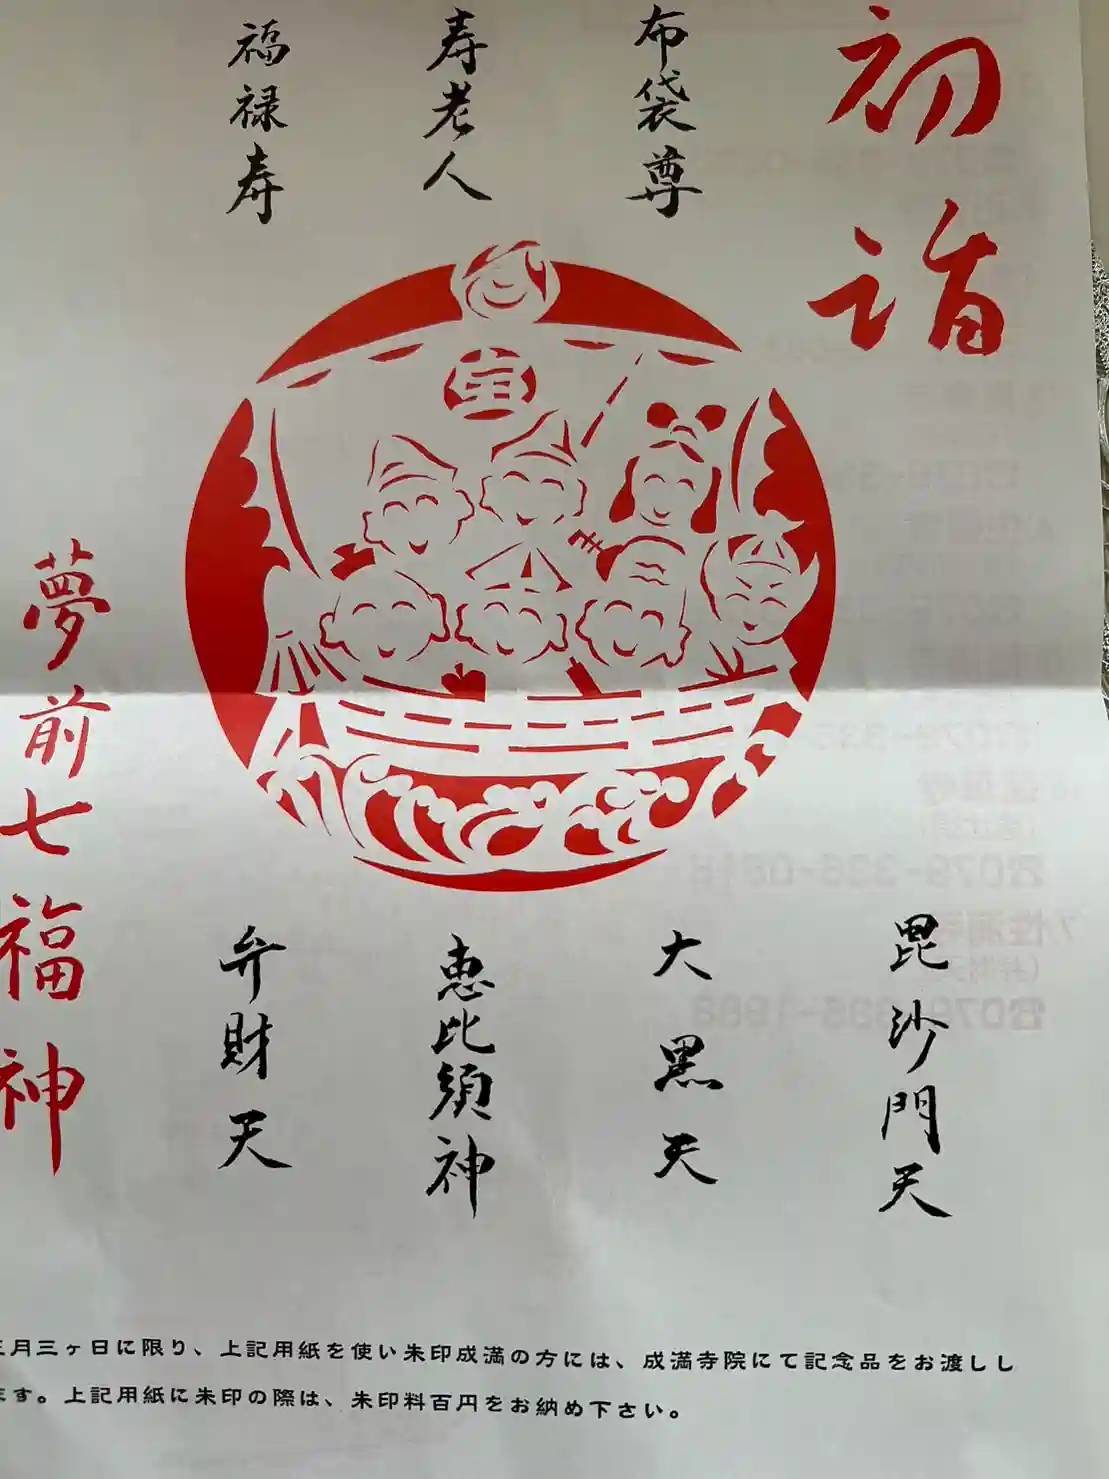 初詣
布袋尊
寿老人
福禄寿
宝
毘沙門天
大黒天
恵比須神
弁財天
夢前七福神
正月三ヶ日に限り、上記用紙を使い朱印成満の方には、成満寺院にて記念品をお渡しし
ます。上記用紙に朱印の際は、朱印料百円をお納め下さい。